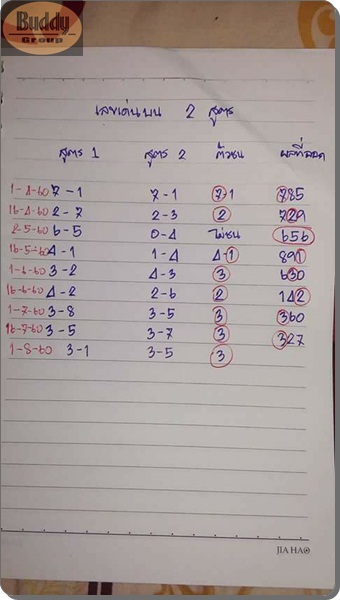 Buddy
Group
เลขเด่นบน 2 สูตร
สูตร 1 สูตร 2 ตัวชน ผลที่ออก
1-4-60 7-1 7-1 7-1 785
16-4-60 2-7 2-3 2 729
2-5-60 6-5 0-4 ไม่ชน 656
16-5-60 4-1 1-4 4-1 891
1-6-60 3-2 4-3 3 630
16-6-60 4-2 2-6 2 142
1-7-60 3-8 3-5 3 360
16-7-60 3-5 3-7 3 327
1-8-60 3-1 3-5 3
JIA HAO